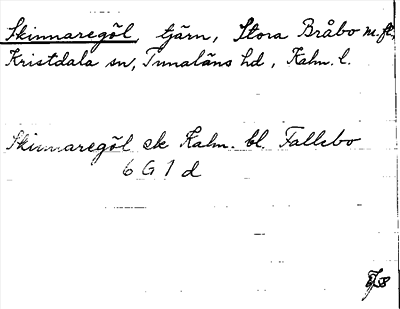 Skinnaregöl, tjärn, Stora Bråbo m.fl.
Kristdala sn, Tunaläns hd, Kalm. l.
Skinnaregöl ek Kalm. bl. Fallebo
6 G 1 d